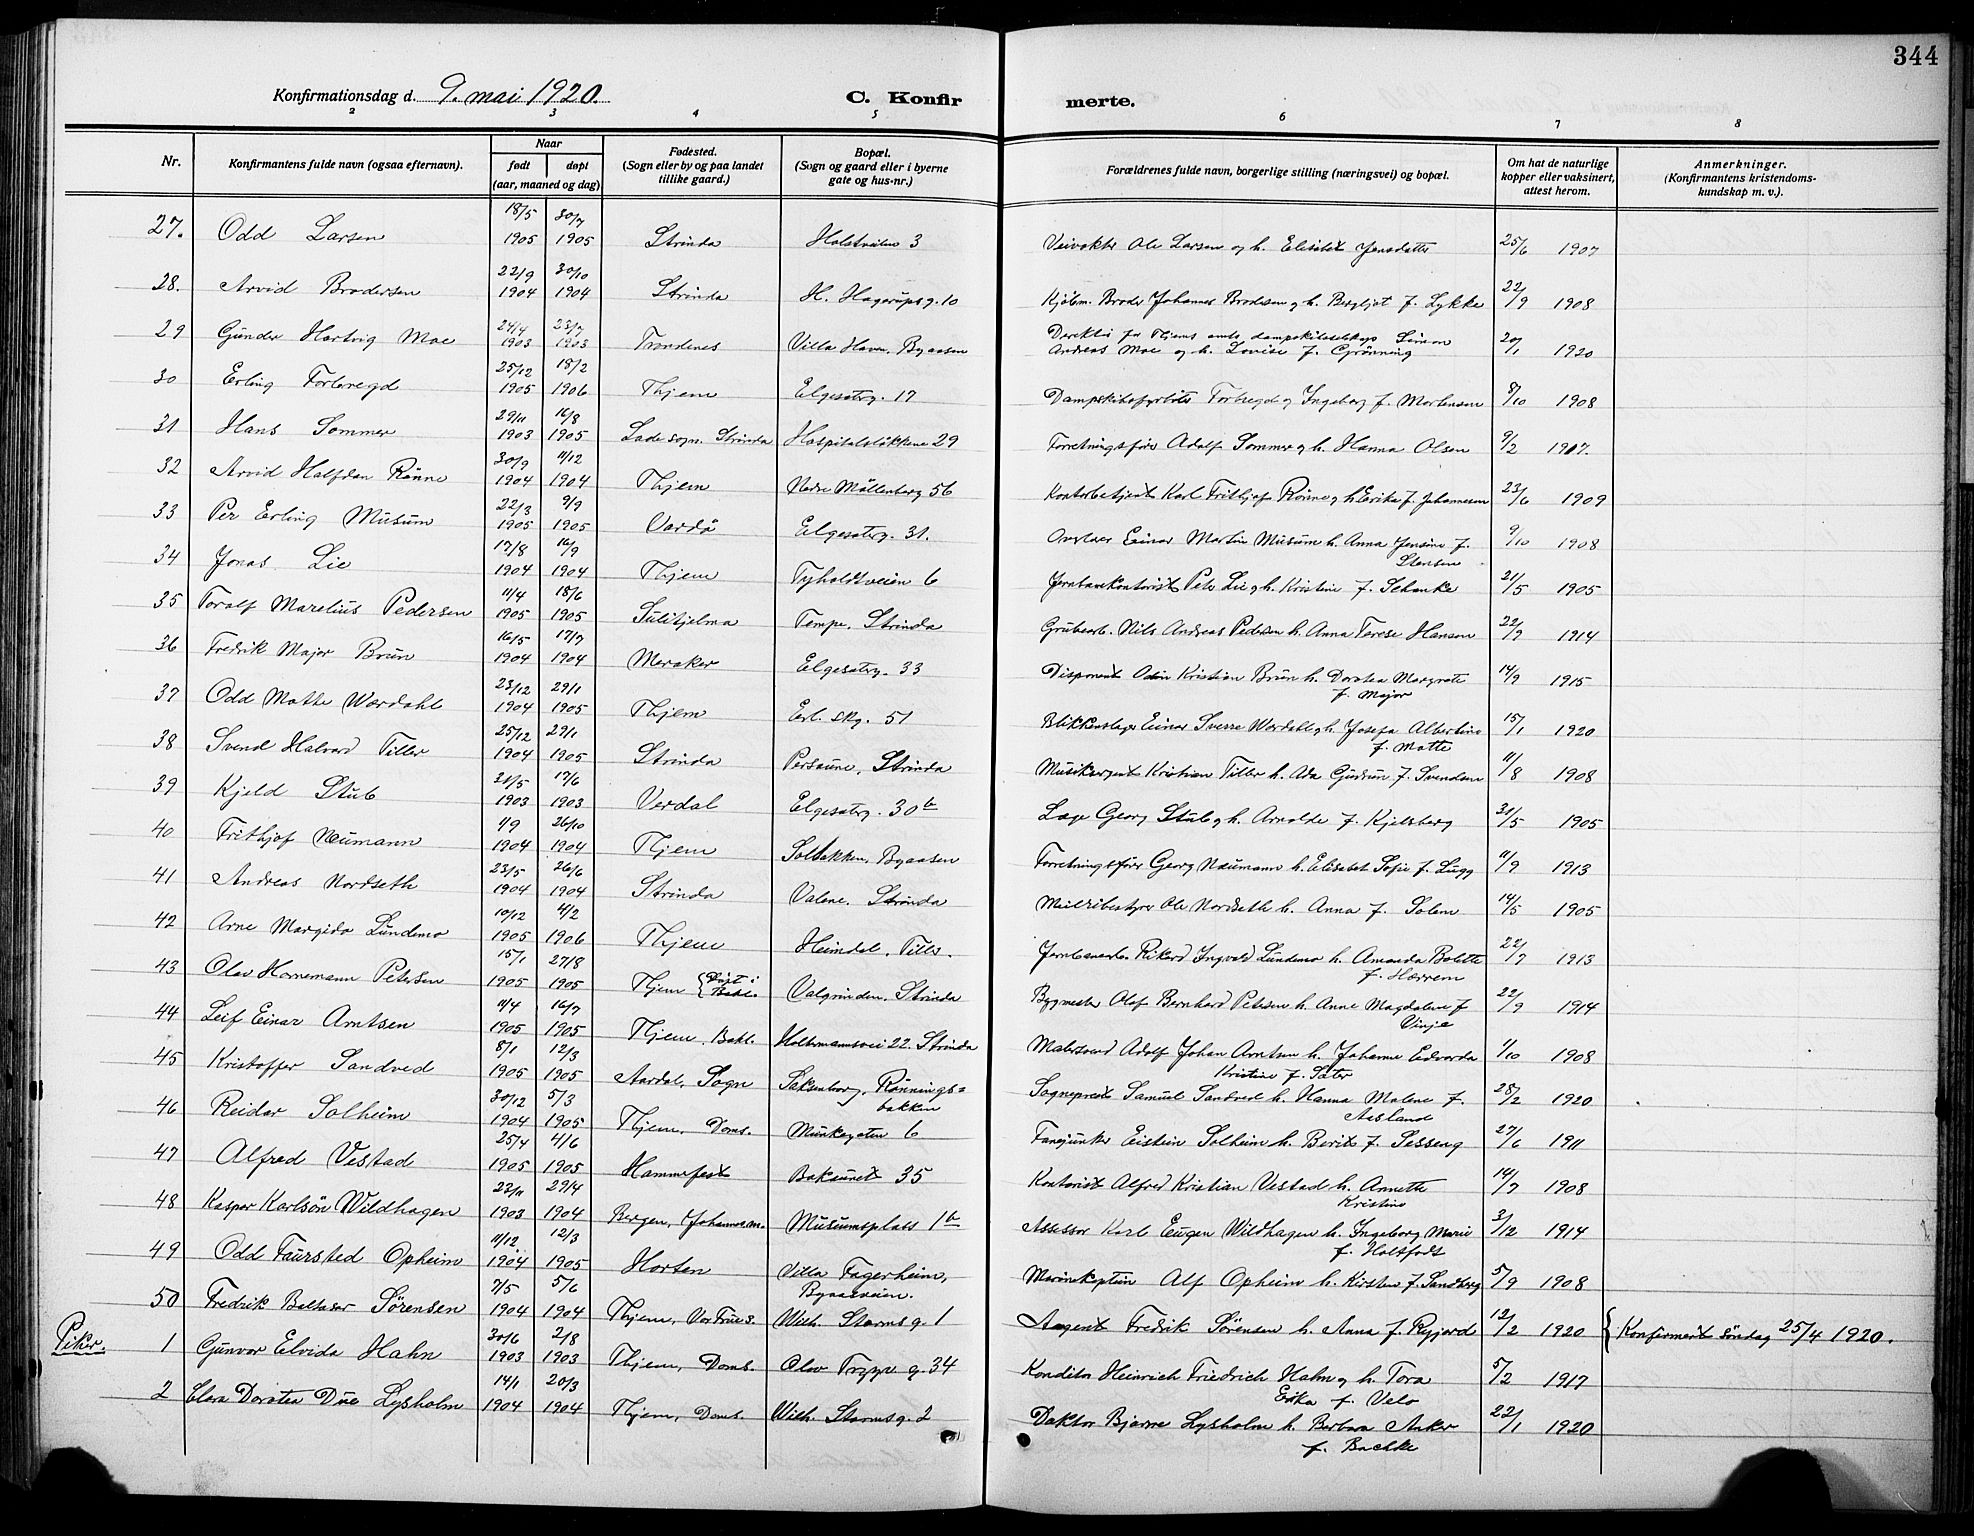 344
Konfirmationsdag d. 9. mai 1920. C. Konfirmerte.
2 3 4 5 6 7 8
Nr. Konfirmantens fulde navn (ogsaa efternavn). Naar født døpt (aar, maaned og dag) Fødested. (Sogn eller by og paa landet tillike gaard.) Bopæl. (Sogn og gaard eller i byerne gate og hus-nr.) Forældrenes fulde navn, borgerlige stilling (næringsvei) og bopæl. Om hat de naturlige kopper eller vaksinert, attest herom. Anmerkninger. (Konfirmantens kristendomskundskap m. v.).
27. Odd Larsen 18/5 1905 30/7 1905 Strinda Holstveien 3 Veivokter Ole Larsen og h. Elisabet Jensdatter 25/6 1907
28. Arvid Brodersen 22/9 1904 30/10 1904 Strinda H. Hagerups g. 10 Kjøbm. Broder Johannes Brodersen og h. Bergljot f. Lykke 22/9 1908
29 Gunder Hartvig Moe 24/4 1903 23/7 1903 Trondenes Villa Haven, Byaasen Direktør for Thjems amts dampskibsselskap Simon Andreas Moe og h. Lovise f. Grønning 20/1 1920
30 Erling Forbregd 25/12 1905 18/2 1906 Thjem Elgesaterg. 17 Dampskibsfyrbøter Forbregd og Ingeborg f. Mortensen 8/10 1908
31 Hans Sommer 29/11 1903 16/8 1905 Lade sogn. Strinda Hospitalsløkkene 29 Forretningsfører Adolf Sommer og h. Hanna Olsen 9/2 1907.
32 Arvid Halfdan Rønne 30/9 1904 11/12 1904 Thjem Nedre Møllenberg 56 Kontorbetjent Karl Frithjof Rønne og h. Erika f. Johannesen 23/6 1909
33 Per Erling Musum 22/3 1905 9/9 1905 Vardø Elgesaterg. 31. Einar Martin Musum h. Anna Jensine f. Stensen 9/10 1908
34 Jonas Lie 17/8 1904 16/9 1904 Thjem Tyholdtveien 6 Jernbanekontorist Peter Lie og h. Kristine f. Schanke 21/5 1905
35 Toralf Marelius Pedersen 11/4 1905 18/6 1905 Sulitjelma Tempe, Strinda Grubearb. Nils Andreas Pedersen h. Anna Terese Hansen 22/9 1914
36 Fredrik Major Brun 16/5 1904 17/7 1904 Meraker Elgesaterg. 33 Disponent Odin Kristian Brun h. Dorotea Margrete f. Major 14/9 1915
37 Odd Motte Wærdahl 23/12 1904 29/1 1905 Thjem Erl. skg. 51 Blikkenslager Einar Sverre Wærdahl og h. Josefa Albertine f. Motte 15/1 1920
38 Svend Halvard Tiller 25/12 1904 29/1 1905 Strinda Persaune, Strinda Musikersgent Kristian Tiller h. Ada Gudrun f. Svendsen 11/8 1908
39 Kjeld Stub 21/5 1903 17/6 1903 Verdal Elgesaterg. 30b Læge Georg Stub og h. Arnolde f. Kjelsberg 31/5 1905
40 Frithjof Neumann 1/9 1904 26/10 1904 Thjem Solbakken, Byaasen Forretningsfører Georg Naumann h. Elisabet Sofie f. Lugg 11/9 1913
41 Andreas Nordseth 23/5 1904 26/6 1904 Strinda Valene. Strinda Meieribestyrer Ole Nordseth h. Anna f. Solem 14/5 1905
42 Arne Margido Lundemo 10/12 1905 4/2 1906 Thjem Heimdal, Tiller. Jernbanearb. Rikard Ingvald Lundemo h. Amanda Bolette f. Hærrem 22/7 1913
43 Olav Hornemann Petersen 15/1 1905 27/8 1905 Thjem {Døpt i Bakl. Valgrinden, Strinda Bygmester Olaf Bernhard Petersen h. Anne Magdalene f. Vinje 22/9 1914
44 Leif Einar Arntsen 11/4 1905 16/7 1905 Thjem, Bakl. Holtermannsvei 22. Strinda Malersvend Adolf Johan Arntsen h. Johanne Edvarda Kristine f. Sæter 1/10 1908
45 Kristoffer Sandved 8/1 1905 12/3 1905 Aardal, Sogn Saksenborg, Rønningsbakken Sogneprest Samuel Sandved h. Hanna Malene f. Aasland 28/2 1920
46 Reidar Solheim 30/12 1904 5/3 1905 Thjem, Doms. Munkegaten 6 Fanejunker Eistein Solheim h. Berit f. Sesseng 27/6 1911
47 Alfred Vestad 25/4 1905 4/6 1905 Hammerfest Baksunet 35 Kontorist Alfred Kristian Vestad h. Annette Kristine 14/7 1908
48 Kaspar Karlsön Wildhagen 22/11 1903 29/4 1904 Bergen, Johannesm. Museumsplass 1b Assessor Karl Eugen Wildhagen h. Ingeborg Marie f. Holtfodt 3/12 1914
49 Odd Faursted Opheim 11/12 1904 12/3 1905 Horten Villa Fagerheim, Byaaveien. Marinekaptein Alf Opheim h. Kirsten f. Sandberg 5/9 1908
50 Fredrik Baltasar Sørensen 7/5 1904 5/6 1904 Thjem, Vor Frue s. Wilh. Storms g. 1 Agent Fredrik Sørensen h. Anna f. Ryjord 12/2 1920 { Konfirmert søndag 25/4 1920.
Piker.
1 Gunvor Elvida Hahn 30/6 1903 2/8 1903 Thjem, Doms. Olav Trygv. g. 34 Konditor Heinrich Friedrich Hahn og h. Tora Erika f. Velo 5/2 1917
2 Elara Dorotea Due Lysholm 14/1 1904 20/3 1904 Thjem, Doms. Wilh. Storms g. 2 Doktor Bjarne Lysholm h. Barbara Anker f. Bachke 22/1 1920